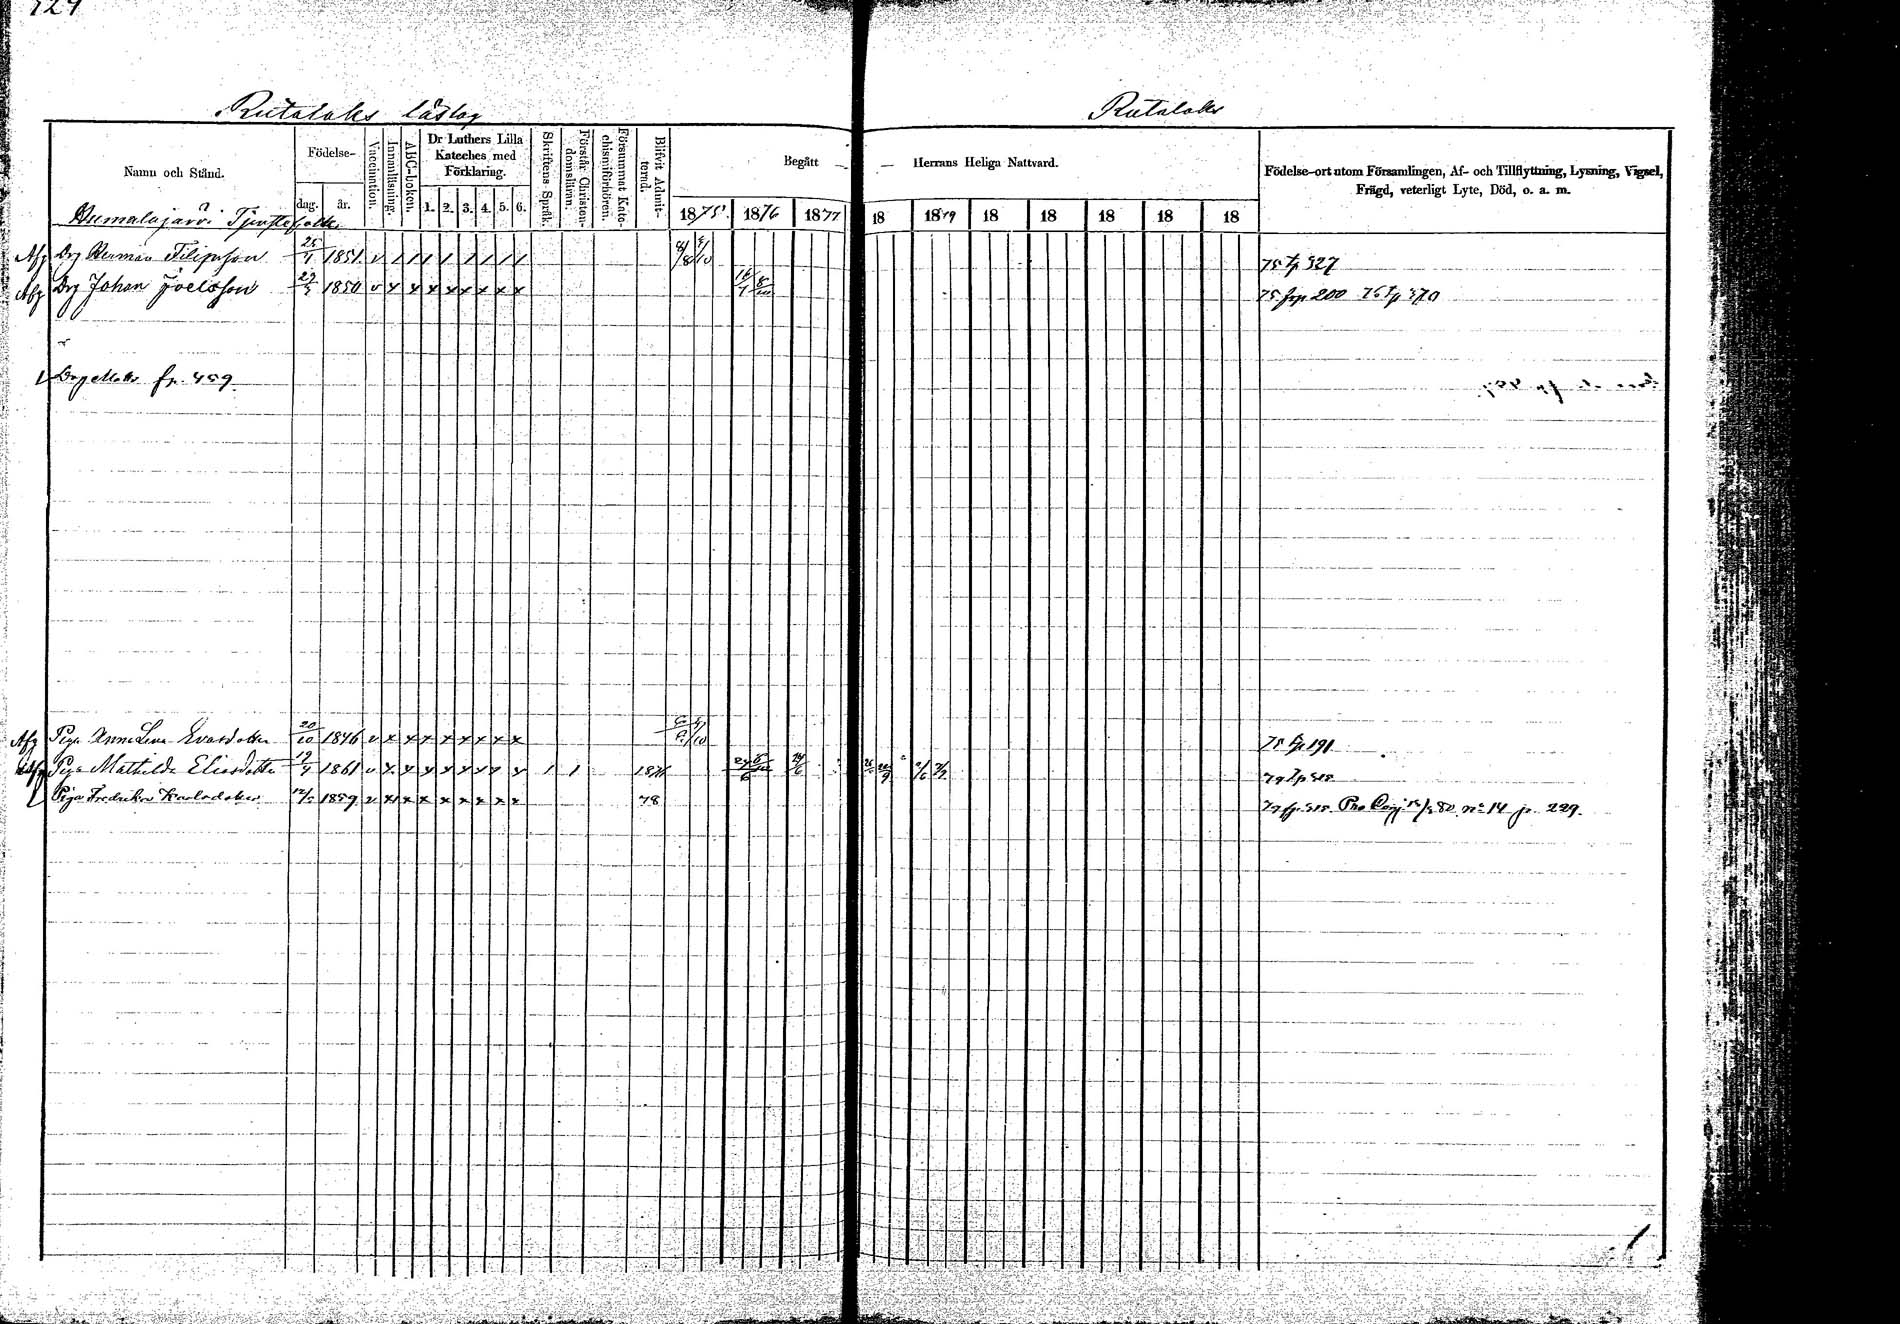 Rutalaks läslag
Rutalaks
Namn och Stånd.
Födelse-
dag.
år.
Vaccination.
Innanläsning.
ABC-boken.
Dr Luthers Lilla
Kateches med
Förklaring.
1. 2. 3. 4. 5. 6.
Skriftens Språk.
Förstår Christen-
domsläran.
Försummat Kate-
chismiförhören.
Blifvit Admit-
terad.
Begått
Herrans Heliga Nattvard.
1875 1876 1877 18 1879 18 18 18 18 18
Födelse-ort utom Församlingen, Af- och Tillflyttning, Lysning, Vigsel,
Frägd, veterligt Lyte, Död, o. a. m.
Humalajärvi Tjenstefolk
Afg Drg Herman Filipsson 25/1 1851 v / / / / / / / / 75 tp 327
Afg Drg Johan Joelsson 29/5 1850 v x x x x x x x x 75 frp 200 76 tp 370
Drg Matts fr. 459
Afg Piga Anna Lena Evasdotter 20/10 1846 v x x x x x x x x 75 tp 191
Piga Mathilda Eliasdotter 19/9 1861 v x x x x x x x x 1 1 1876 79 tp 515
Piga Fredrika Karlsdotter 12/5 1859 v x x x x x x x x 78 79 fp. 515 80 no 14 p. 229.